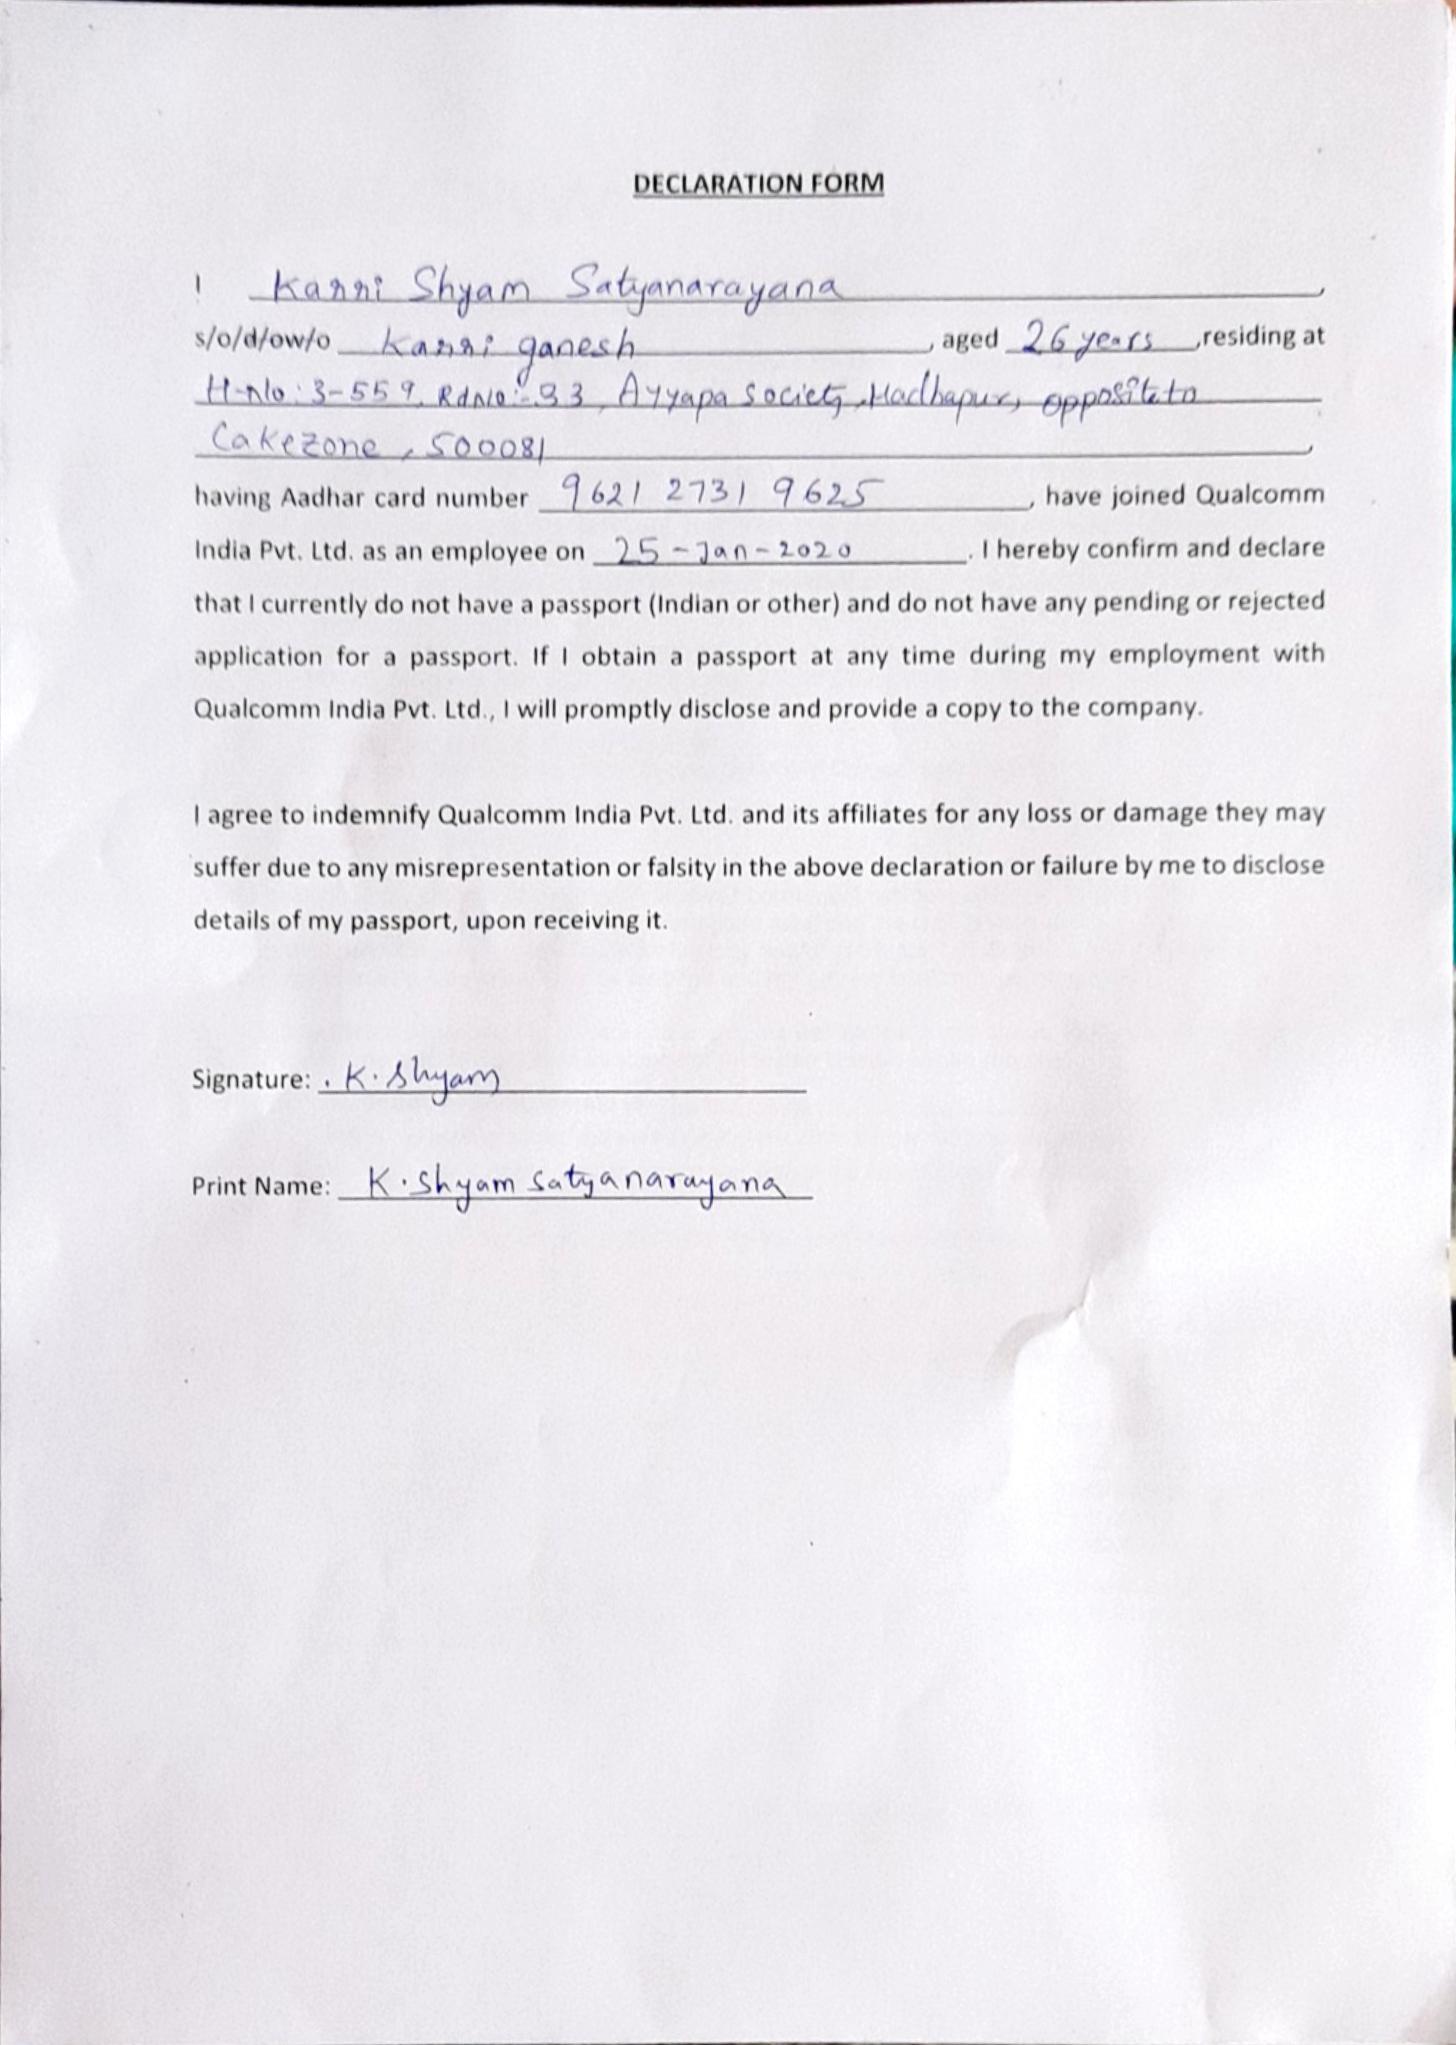 DECLARATION FORM
I Karri Shyam Satyanarayana,
s/o/d/ow/o Karri ganesh, aged 26 years, residing at
H-No: 3-559, RdNo:- 33, Ayyapa Society, Madhapur, opposite to
Cakezone, 500081,
having Aadhar card number 9621 2731 9625, have joined Qualcomm
India Pvt. Ltd. as an employee on 25-Jan-2020. I hereby confirm and declare
that I currently do not have a passport (Indian or other) and do not have any pending or rejected
application for a passport. If I obtain a passport at any time during my employment with
Qualcomm India Pvt. Ltd., I will promptly disclose and provide a copy to the company.
I agree to indemnify Qualcomm India Pvt. Ltd. and its affiliates for any loss or damage they may
suffer due to any misrepresentation or falsity in the above declaration or failure by me to disclose
details of my passport, upon receiving it.
Signature: K. Shyam
Print Name: K. Shyam Satyanarayana